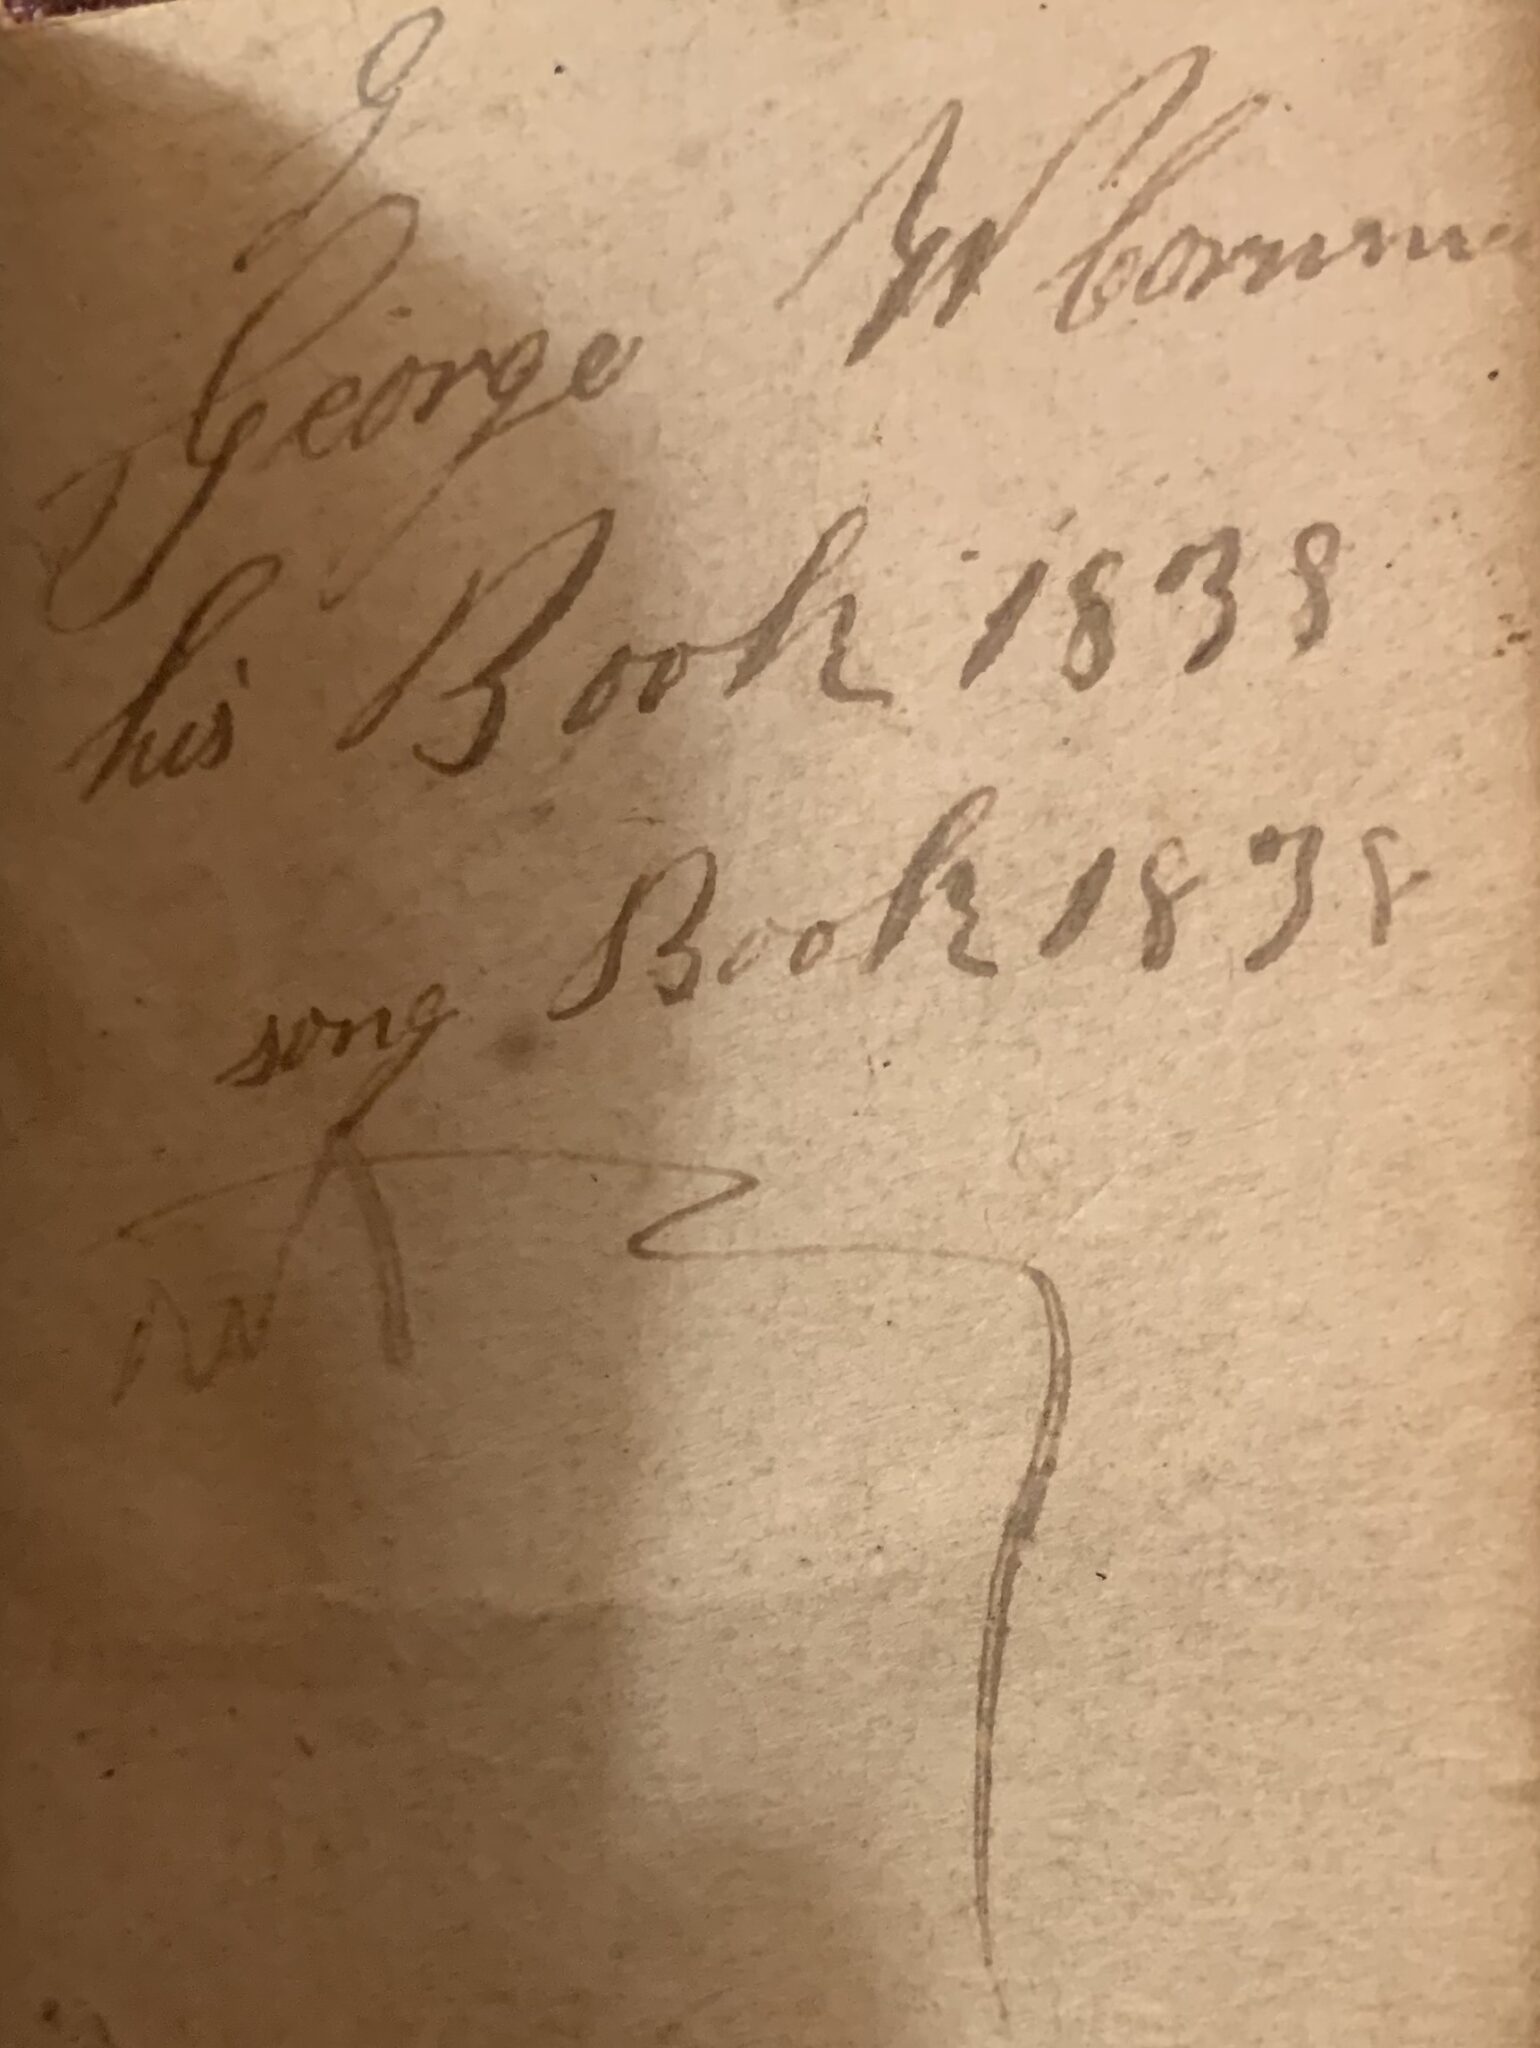 George W
his Book 1838
song Book 1838